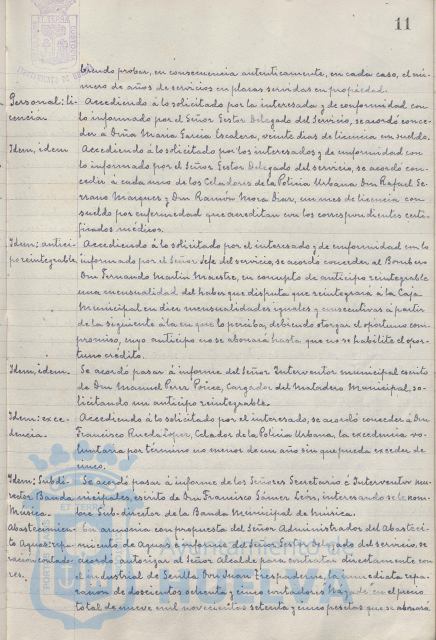 11
biendo probar, en consecuencia autenticamente, en cada caso, el nú-
mero de años de servicios en plazas servidas en propiedad.
Personal: li- Accediendo a lo solicitado por la interesada y de conformidad con
cencia. lo informado por el Señor Gestor Delegado del Servicio, se acordó conce-
der a Doña María García Escalera, veinte dias de licencia con sueldo.
Idem, idem Accediendo a lo solicitado por los interesados y de conformidad con
lo informado por el Señor Gestor Delegado del servicio, se acordó con-
ceder á cada uno de los Celadores de la Policia Urbana, Don Rafael Se-
rrano Marques y Don Ramón Mora Diaz, un mes de licencia con
sueldo por enfermedad que acreditan con los correspondientes certi-
ficados médicos.
Idem; antici- Accediendo á lo solicitado por el interesado y de conformidad con lo
po reintegrable informado por el Señor Jefe del servicio, se acordó conceder al Bombero
Don Fernando Martin Maestre, en concepto de anticipo reintegrable
una mensualidad del haber que disfruta que reintegrará á la Caja
Municipal en diez mensualidades iguales y consecutivas á partir
de la siguiente á la en que lo perciba, debiendo otorgar el oportuno com-
promiso, cuyo anticipo no se abonará hasta que no se habilite el opor-
tuno crédito.
Idem, idem. Se acordó pasar á informe del Señor Interventor municipal escrito
de Don Manuel Perez Ponce, Cargador del Matadero Municipal, so-
licitando un anticipo reintegrable.
Idem: exce- Accediendo á lo solicitado por el interesado, se acordó conceder á Don
dencia. Francisco Rueda Lopez, Celador de la Policia Urbana, la excedencia vo-
luntaria por termino no menos de un año sin que pueda exceder de
cinco.
Idem; Subdi- Se acordó pasar á informe de los Señores Secretario é Interventor mu-
rector Banda nicipales, escrito de Don Francisco Gómez León, interesando se le nom-
Música. bre Sub-director de la Banda Municipal de música.
Abastecimien- En armonia con propuesta del Señor Administrador del Abasteci-
to Aguas: repa- miento de Aguas é informe del Señor Gestor Delegado del servicio, se
ración contado- acordó autorizar al Señor Alcalde para contratar directamente con
res. el industrial de Sevilla Don Juan la inmediata repa-
ración de doscientos setenta y cinco contadores en el precio
total de nueve mil novecientas setenta y cinco pesetas que se abonará
Ayuntamiento de
HUELVA